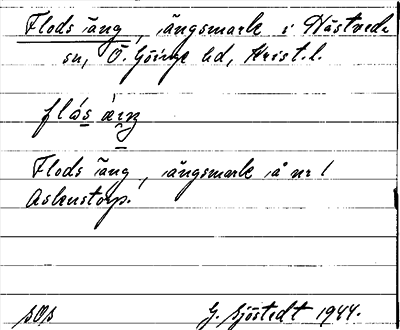 Flods äng, ängsmark i Hästveda
sn, Ö. Göinge hd, Krist. l.
Flods äng, ängsmark å nr 1
Askustorp.
SOS G. Sjöstedt 1944.